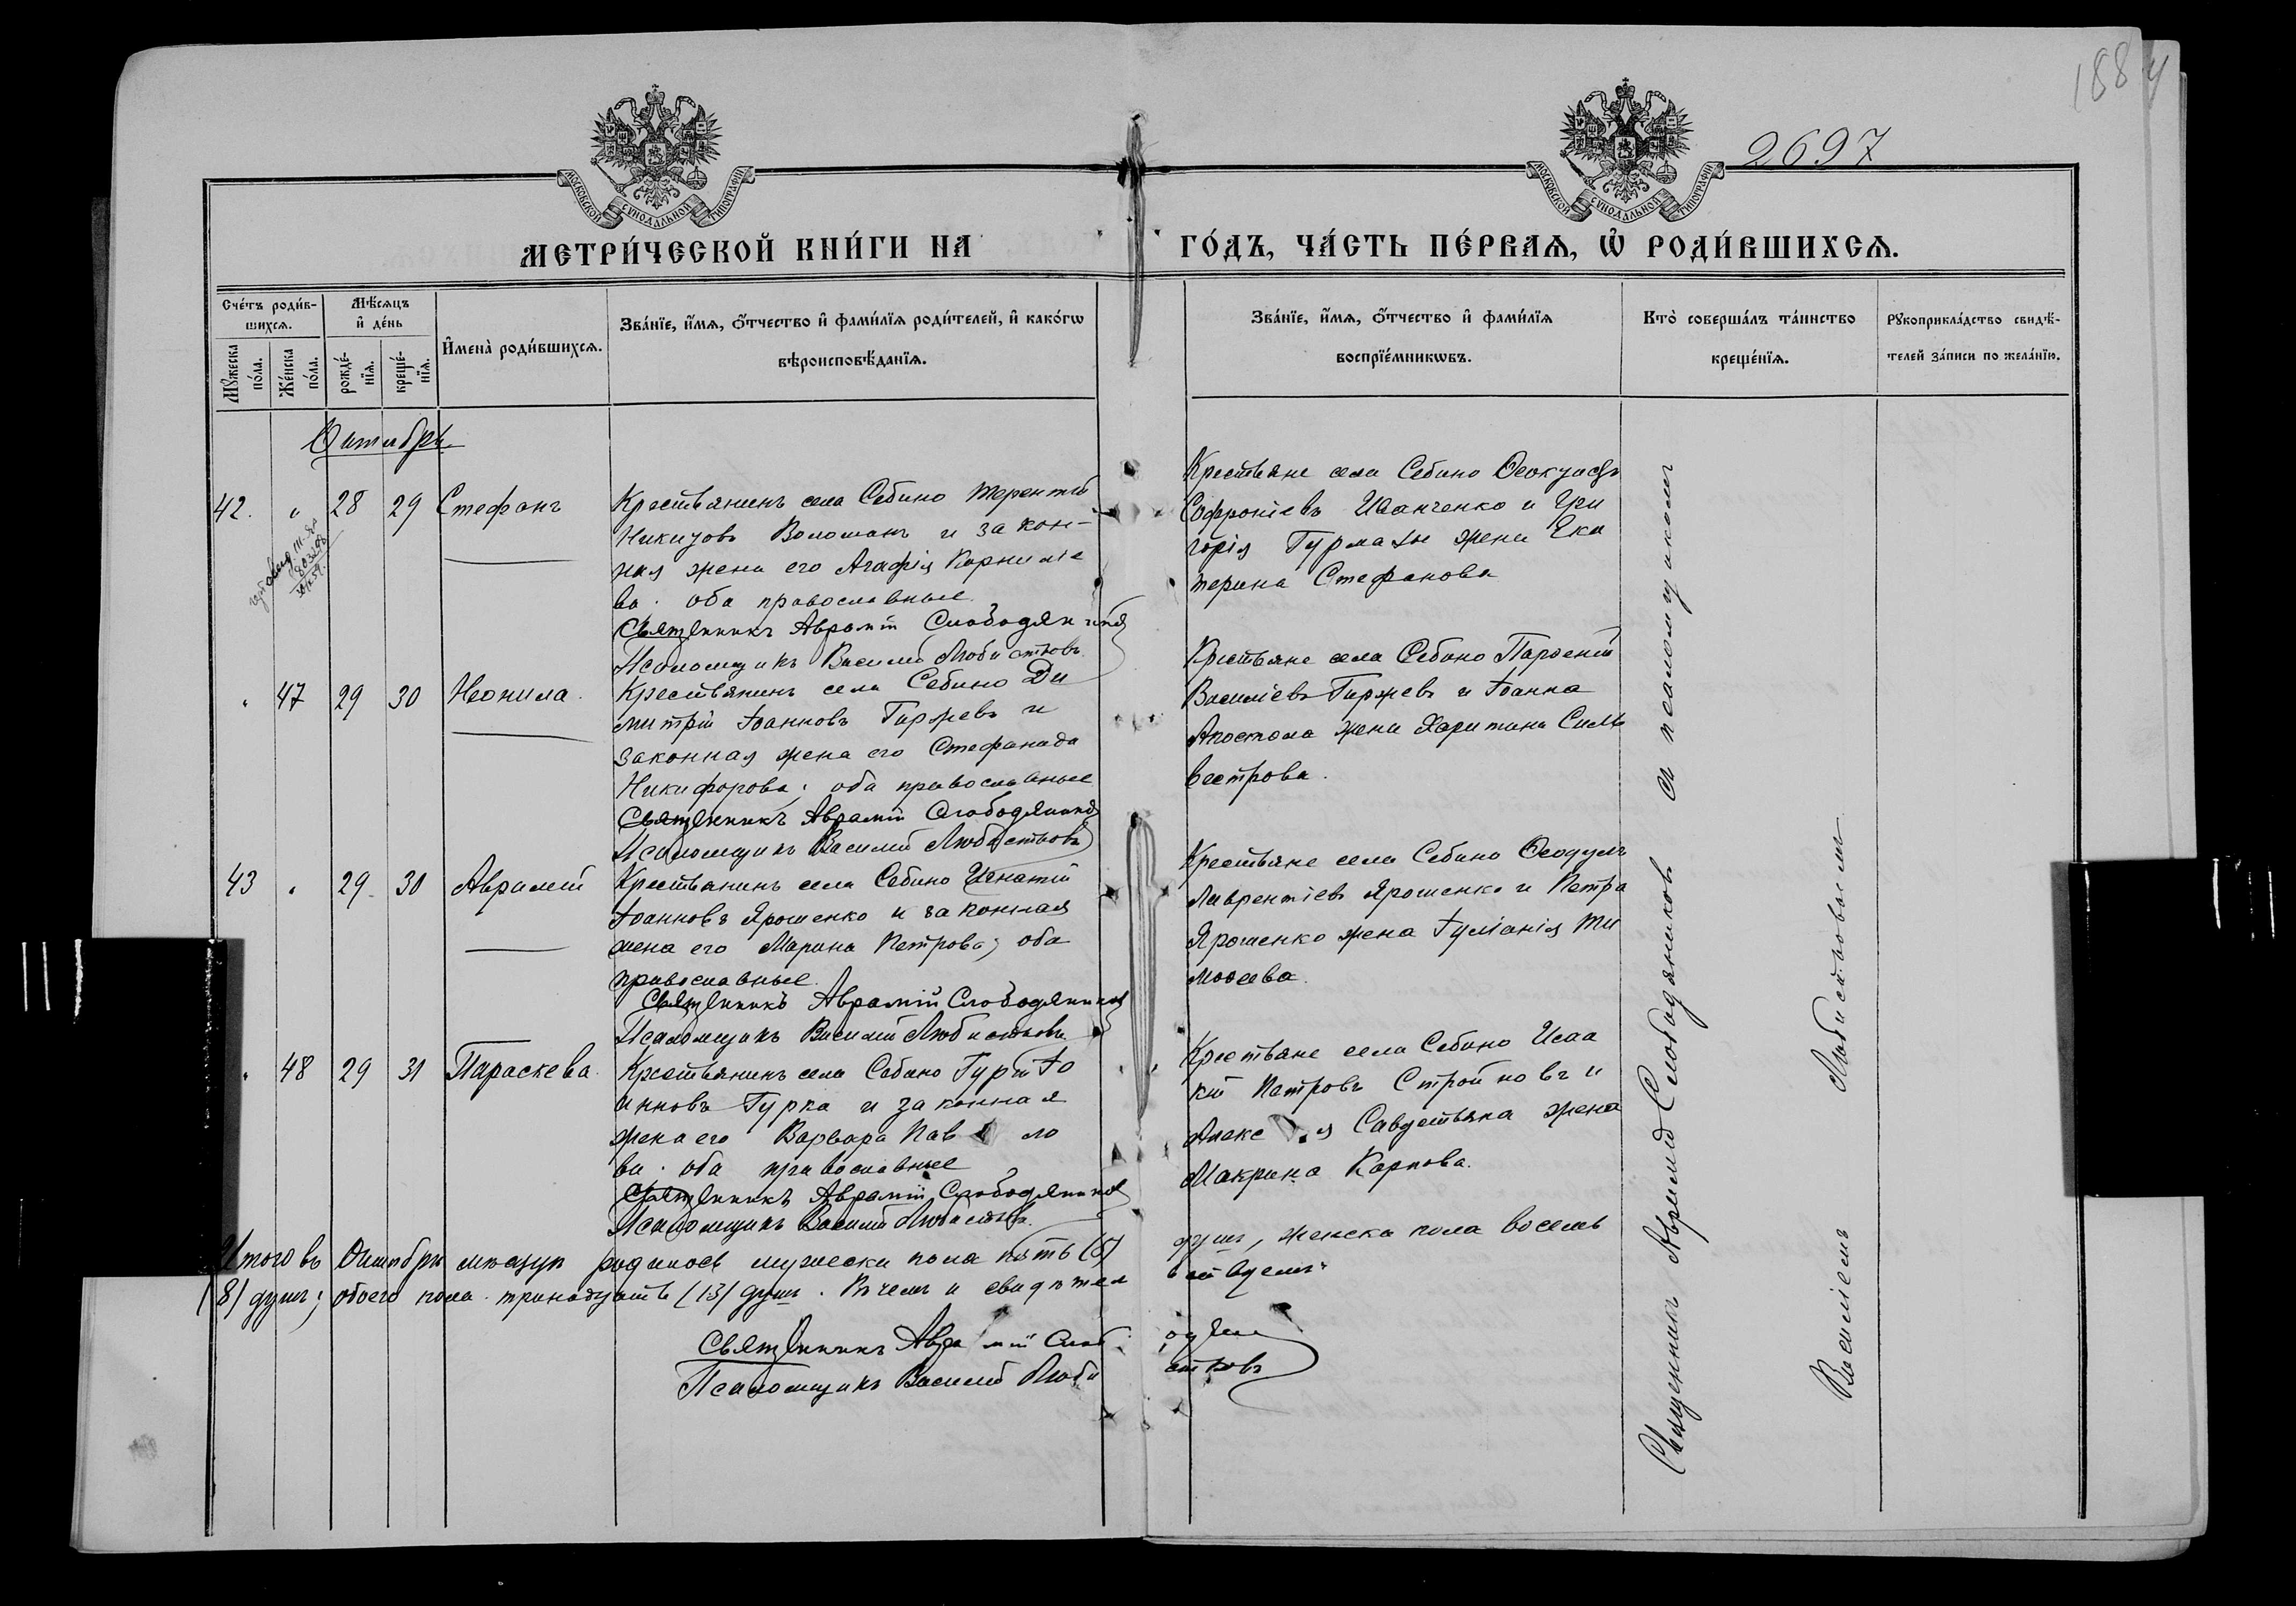 1884
2697
МОСКОВСКОЙ СѴНОДАЛЬНОЙ ТИПОГРАФІИ
МОСКОВСКОЙ СѴНОДАЛЬНОЙ ТИПОГРАФІИ
МЕТРИ́ЧЕСКОЙ КНИ́ГИ НА ГО́ДЪ, ЧА́СТЬ ПЕ́РВАѦ, Ѽ РОДИ́ВШИХСѦ.
Сче́тъ роди́в-
шихсѧ.
Мѣ́сѧцъ
и҆ де́нь
Мꙋ́жеска
по́ла.
Же́нска
по́ла.
рожде́-
нїѧ.
креще́-
нїѧ.
И҆мена̀ роди́вшихсѧ.
Зва́нїе, и҆́мѧ, ѻ҆́тчество и҆ фами́лїѧ роди́телей, и҆ како́гѡ
вѣроисповѣ́данїѧ.
Зва́нїе, и҆́мѧ, ѻ҆́тчество и҆ фами́лїѧ
воспрїе́мникѡвъ.
Кто̀ соверша́лъ та́инство
креще́нїѧ.
Рꙋкоприкла́дство свидѣ́-
телей за́писи по жела́нїю.
Октябрь
42. " 28 29 Стефанъ
Крестьянинъ села Себино Терентій
Никитовъ Волошанъ и закон-
ная жена его Агафія Корниліе
ва. оба православные
Священникъ Аврамій Слободяник
Псаломщикъ Василій Любистковъ
Крестьяне села Себино
Софроніевъ Иванченко и Гри
горія жена Ека
терина Стефанова
" 47 29 30 Неонила.
Крестьянинъ села Себино Ди
митрій Іоанновъ Гиржевъ и
законная жена его Стефанида
Никифорова; оба православные
Священникъ Аврамій Слободяник
Псаломщикъ Василій Любистковъ
Крестьяне села Себино Парѳеній
Василіевъ Гиржевъ и Іоанна
Апостола жена Харитина Силь
вестрова.
43 " 29 30 Аврамій
Крестьянинъ села Себино Игнатій
Іоанновъ Ярошенко и законная
жена его Марина Петрова; оба
православные.
Священникъ Аврамій Слободяник
Псаломщикъ Василій Любистковъ
Крестьяне села Себино Ѳеодулъ
Лаврентіевъ Ярошенко и Петра
Ярошенко жена Іуліанія Ти
моѳеева.
" 48 29 31 Параскева.
Крестьянинъ села Себино Гурій Іо
анновъ Гурка и законная
жена его Варвара Пав ло
ва. оба православные
Священникъ Аврамій Слободяник
Псаломщикъ Василій Любистковъ.
Крестьяне села Себино Исаа
кій Петровъ Стройновъ и
жена
Макрина Карпова.
Священникъ Аврамій Слободяниковъ и псаломщикомъ
Василіемъ Любистковымъ
Итого въ Октябрѣ мѣсяцѣ родилось мужеска пола пять (5) душъ, женска пола восемь
(8) душъ; обоего пола тринадцать (13) душъ. Въ чемъ и свидѣтельствуемъ:
Священникъ Аврамій Слободяник
Псаломщикъ Василій Любистковъ